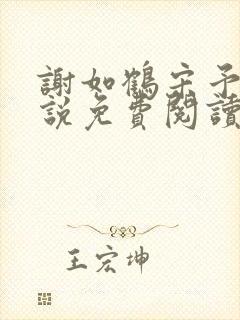 謝如鶴宋予
說免費閱讀
王宏坤